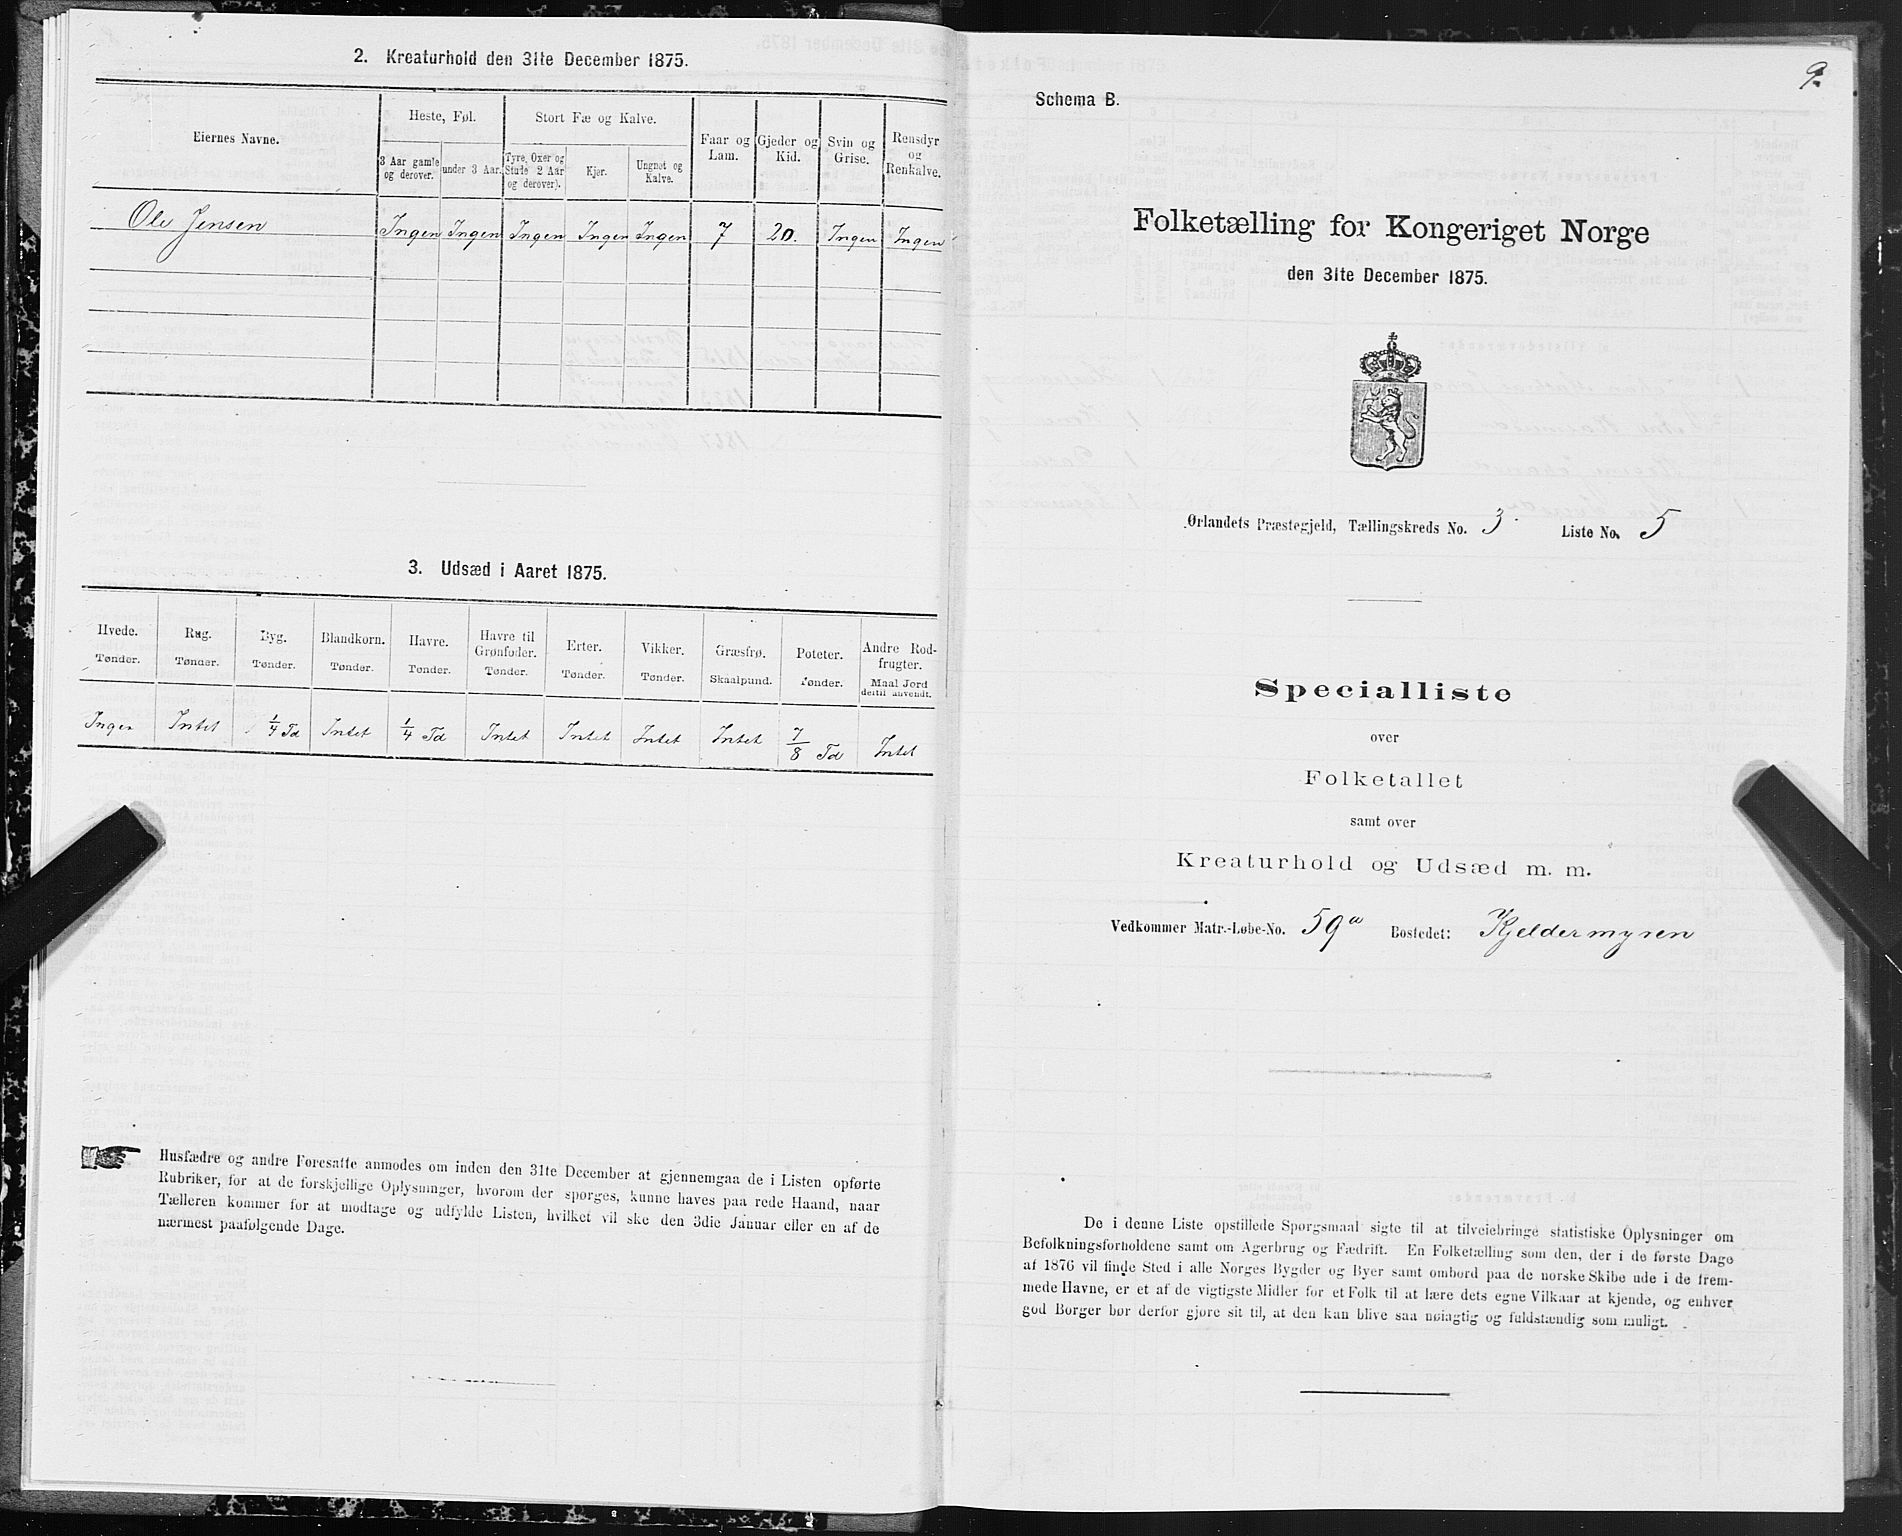 2. Kreaturhold den 31te December 1875.
Eiernes Navne.
Heste, Føl.
Stort Fæ og Kalve.
Faar og Lam.
Gjeder og Kid.
Svin og Grise.
Rensdyr og Renkalve.
3 Aar gamle og derover.
under 3 Aar.
Tyre, Oxer og Stude 2 Aar og derover).
Kjør.
Ungnøt og Kalve.
Ole Jensen Ingen Ingen Ingen Ingen Ingen 7 20. Ingen Ingen
3. Udsæd i Aaret 1875.
Hvede. Rug. Byg. Blandkorn. Havre. Havre til Grønfoder. Erter. Vikker. Græsfrø. Poteter. Andre Rodfrugter.
Tønder. Tønder. Tønder. Tønder. Tønder. Tønder. Tønder. Tønder. Skaalpund. Tønder. Maal Jord dertil anvendt.
Ingen Intet 1/4 Td Intet 1/4 Td Intet Intet Intet Intet 7/8 Td Intet
Husfædre og andre Foresatte anmodes om inden den 31te December at gjennemgaa de i Listen opførte
Rubriker, for at de forskjellige Oplysninger, hvorom der spørges, kunne haves paa rede Haand, naar
Tælleren kommer for at modtage og udfylde Listen, hvilket vil ske den 3die Januar eller en af de
nærmest paafølgende Dage.
9.
Schema B.
Folketælling for Kongeriget Norge
den 31te December 1875.
Ørlandets Præstegjeld, Tællingskreds No. 3. Liste No. 5
Specialliste
over
Folketallet
samt over
Kreaturhold og Udsæd m. m.
Vedkommer Matr.-Løbe-No. 59a Bostedet: Kjeldermyren
De i denne Liste opstillede Spørgsmaal sigte til at tilveiebringe statistiske Oplysninger om
Befolkningsforholdene samt om Agerbrug og Fædrift. En Folketælling som den, der i de første Dage
af 1876 vil finde Sted i alle Norges Bygder og Byer samt ombord paa de norske Skibe ude i de frem-
mede Havne, er et af de vigtigste Midler for et Folk til at lære dets egne Vilkaar at kjende, og enhver
god Borger bør derfor gjøre sit til, at den kan blive saa nøiagtig og fuldstændig som muligt.